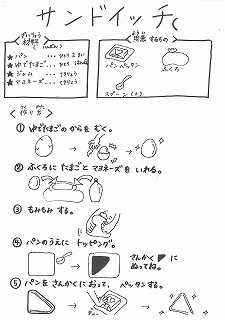 サンドイッチ
ざいりょう
材料
用意するもの
★ パン ･･･ ひとり 2まい
★ ゆでたまご ･･･ ひとり
★ ジャム ･･･ てきりょう
★ マヨネーズ ･･･ てきりょう
パン ペッタン
ふくろ
スプーン
〈作り方〉
① ゆでたまごの からを むく。
② ふくろに たまごと マヨネーズを いれる。
③ もみもみ する。
④ パンのうえに トッピング。
さんかく に
ぬってね。
⑤ パンを さんかくに おって, ペッタンする。